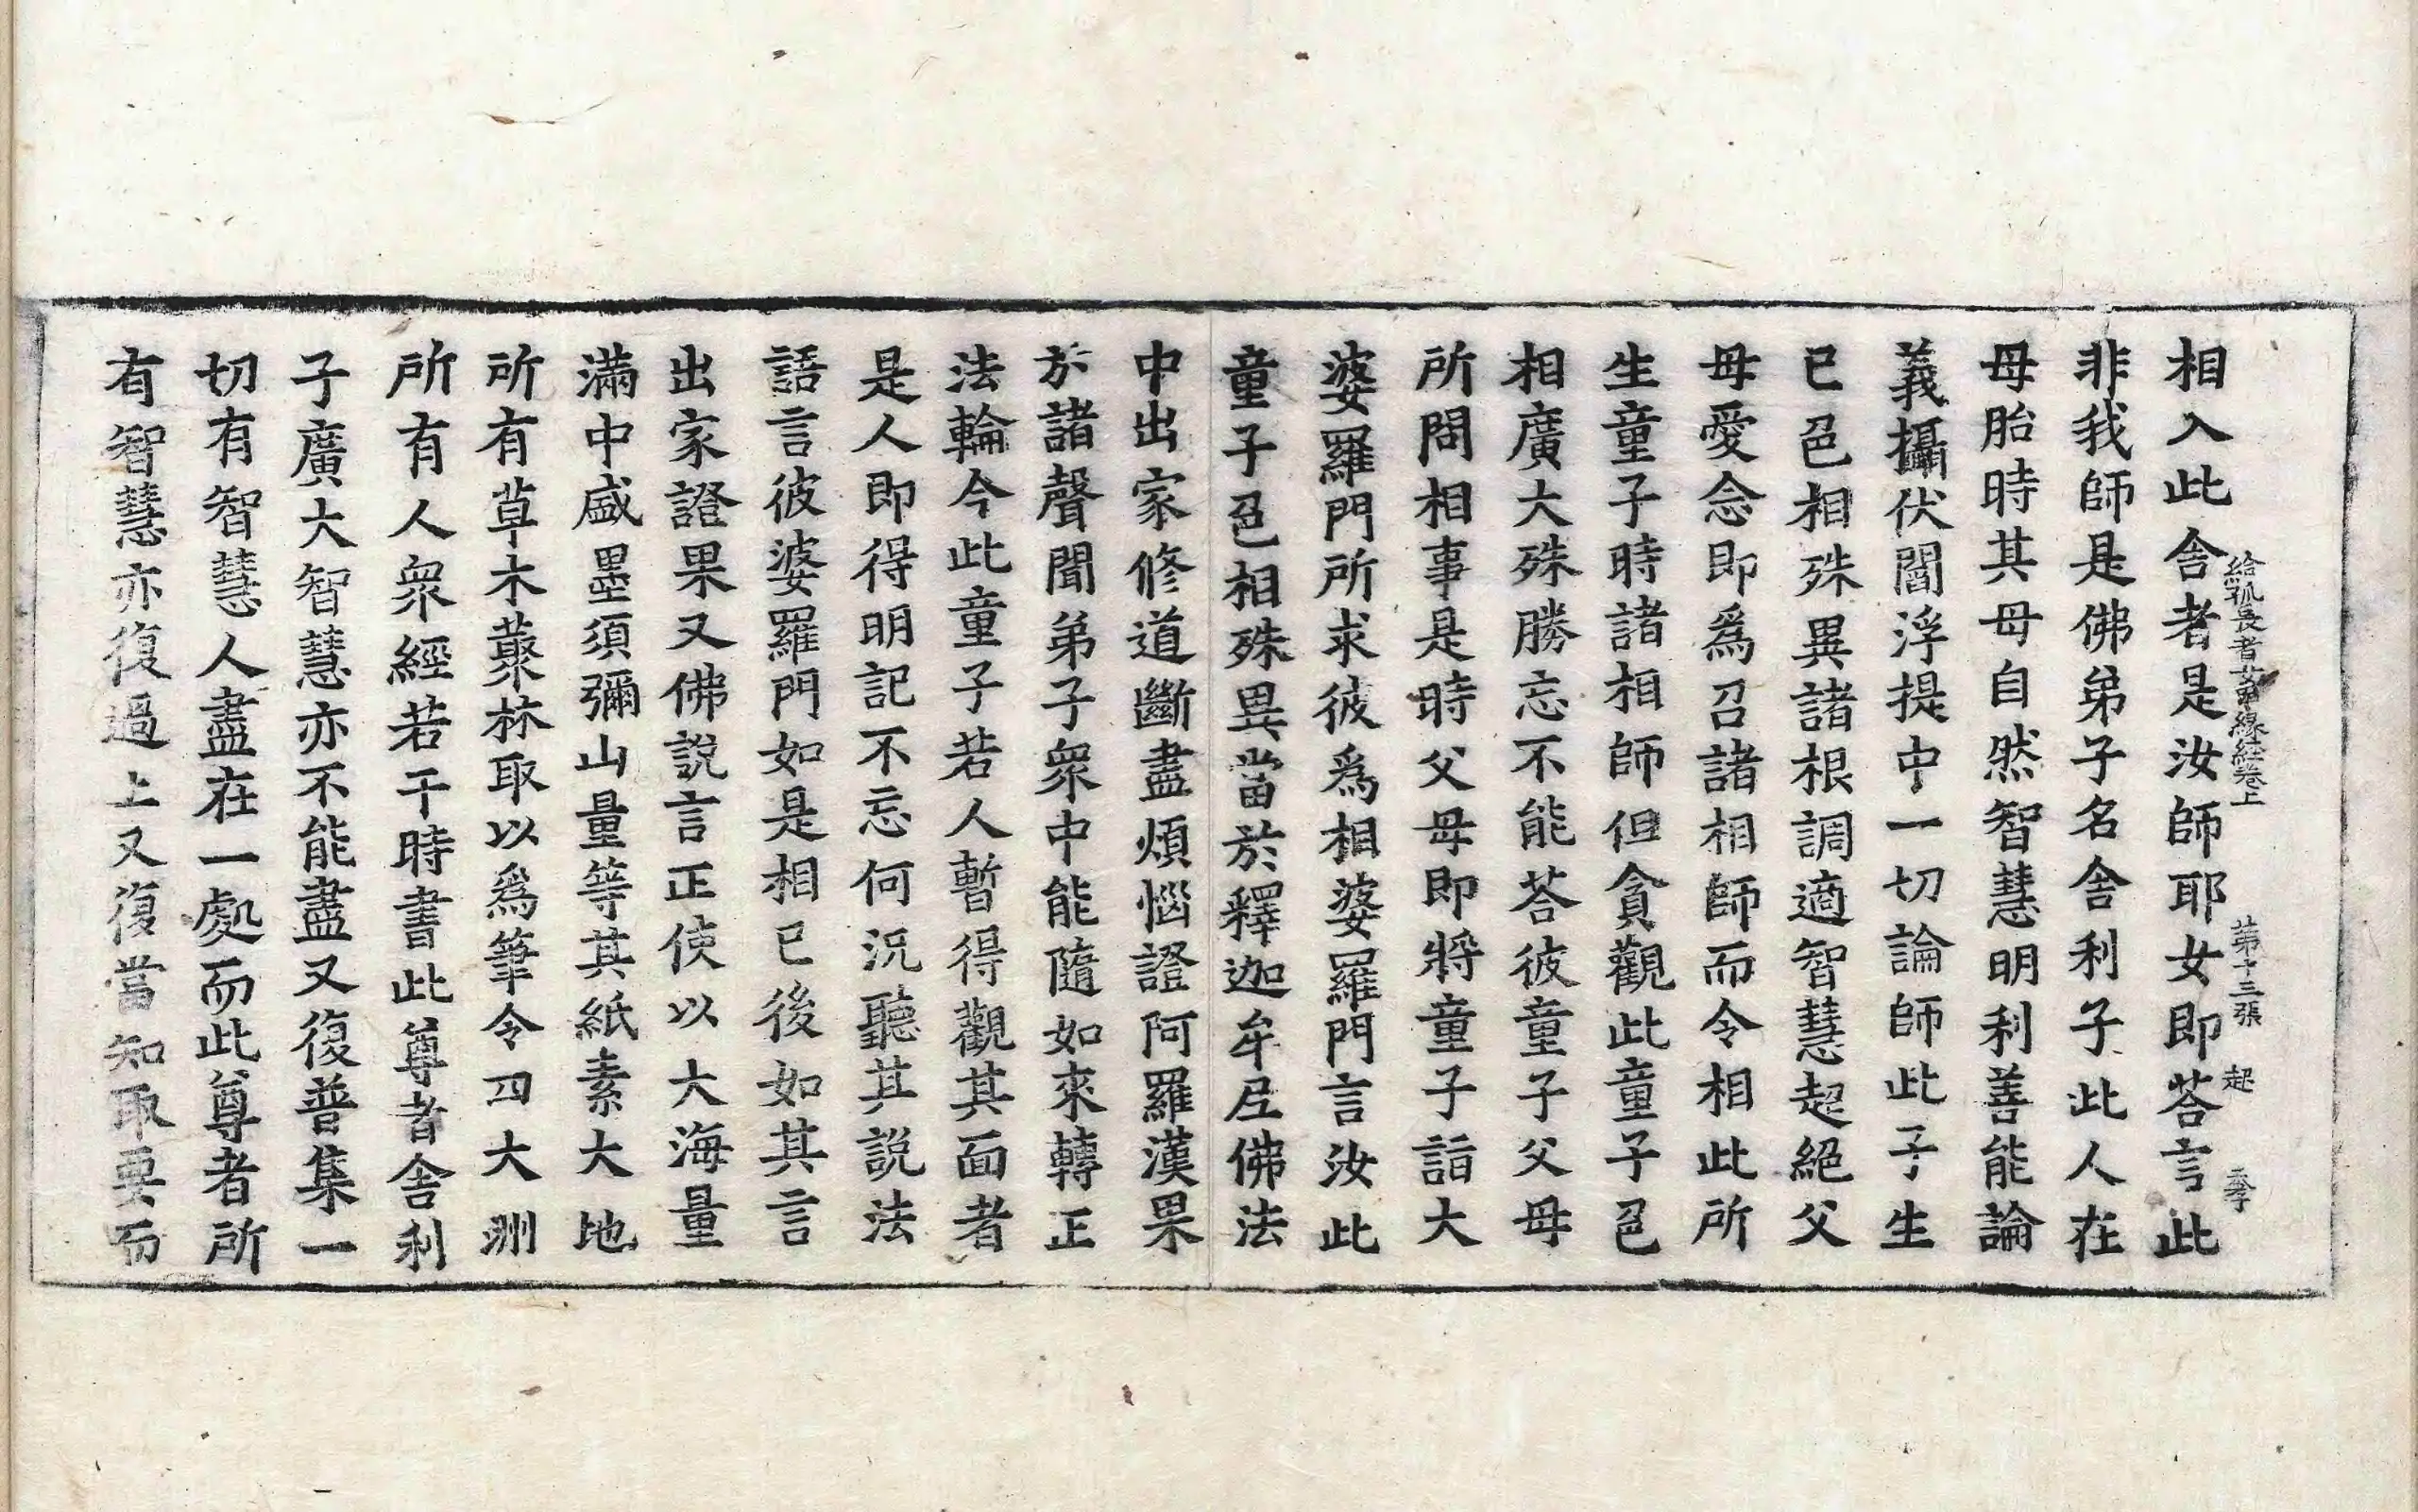 給孤長者女得緣經卷上 第十三張 起
相入此舍者是汝師耶女即荅言此
非我師是佛弟子名舍利子此人在
母胎時其母自然智慧明利善能論
義攝伏閻浮提中一切論師此子生
已色相殊異諸根調適智慧超絕父
母愛念即爲召諸相師而令相此所
生童子時諸相師但貪觀此童子色
相廣大殊勝忘不能荅彼童子父母
所問相事是時父母即將童子詣大
婆羅門所求彼爲相婆羅門言汝此
童子色相殊異當於釋迦牟尼佛法
中出家修道斷盡煩惱證阿羅漢果
於諸聲聞弟子衆中能隨如來轉正
法輪今此童子若人暫得觀其面者
是人即得明記不忘何況聽其說法
語言彼婆羅門如是相已後如其言
出家證果又佛說言正使以大海量
滿中盛墨須彌山量等其紙素大地
所有草木叢林取以爲筆令四大洲
所有人衆經若干時書此尊者舍利
子廣大智慧亦不能盡又復普集一
切有智慧人盡在一處而此尊者所
有智慧亦復過上又復當知取要而